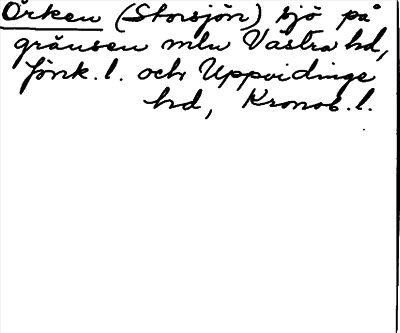 Örken (Storsjön) sjö på
gränsen mln Västra hd,
Jönk. l. och Uppvidinge
hd, Kronob. l.